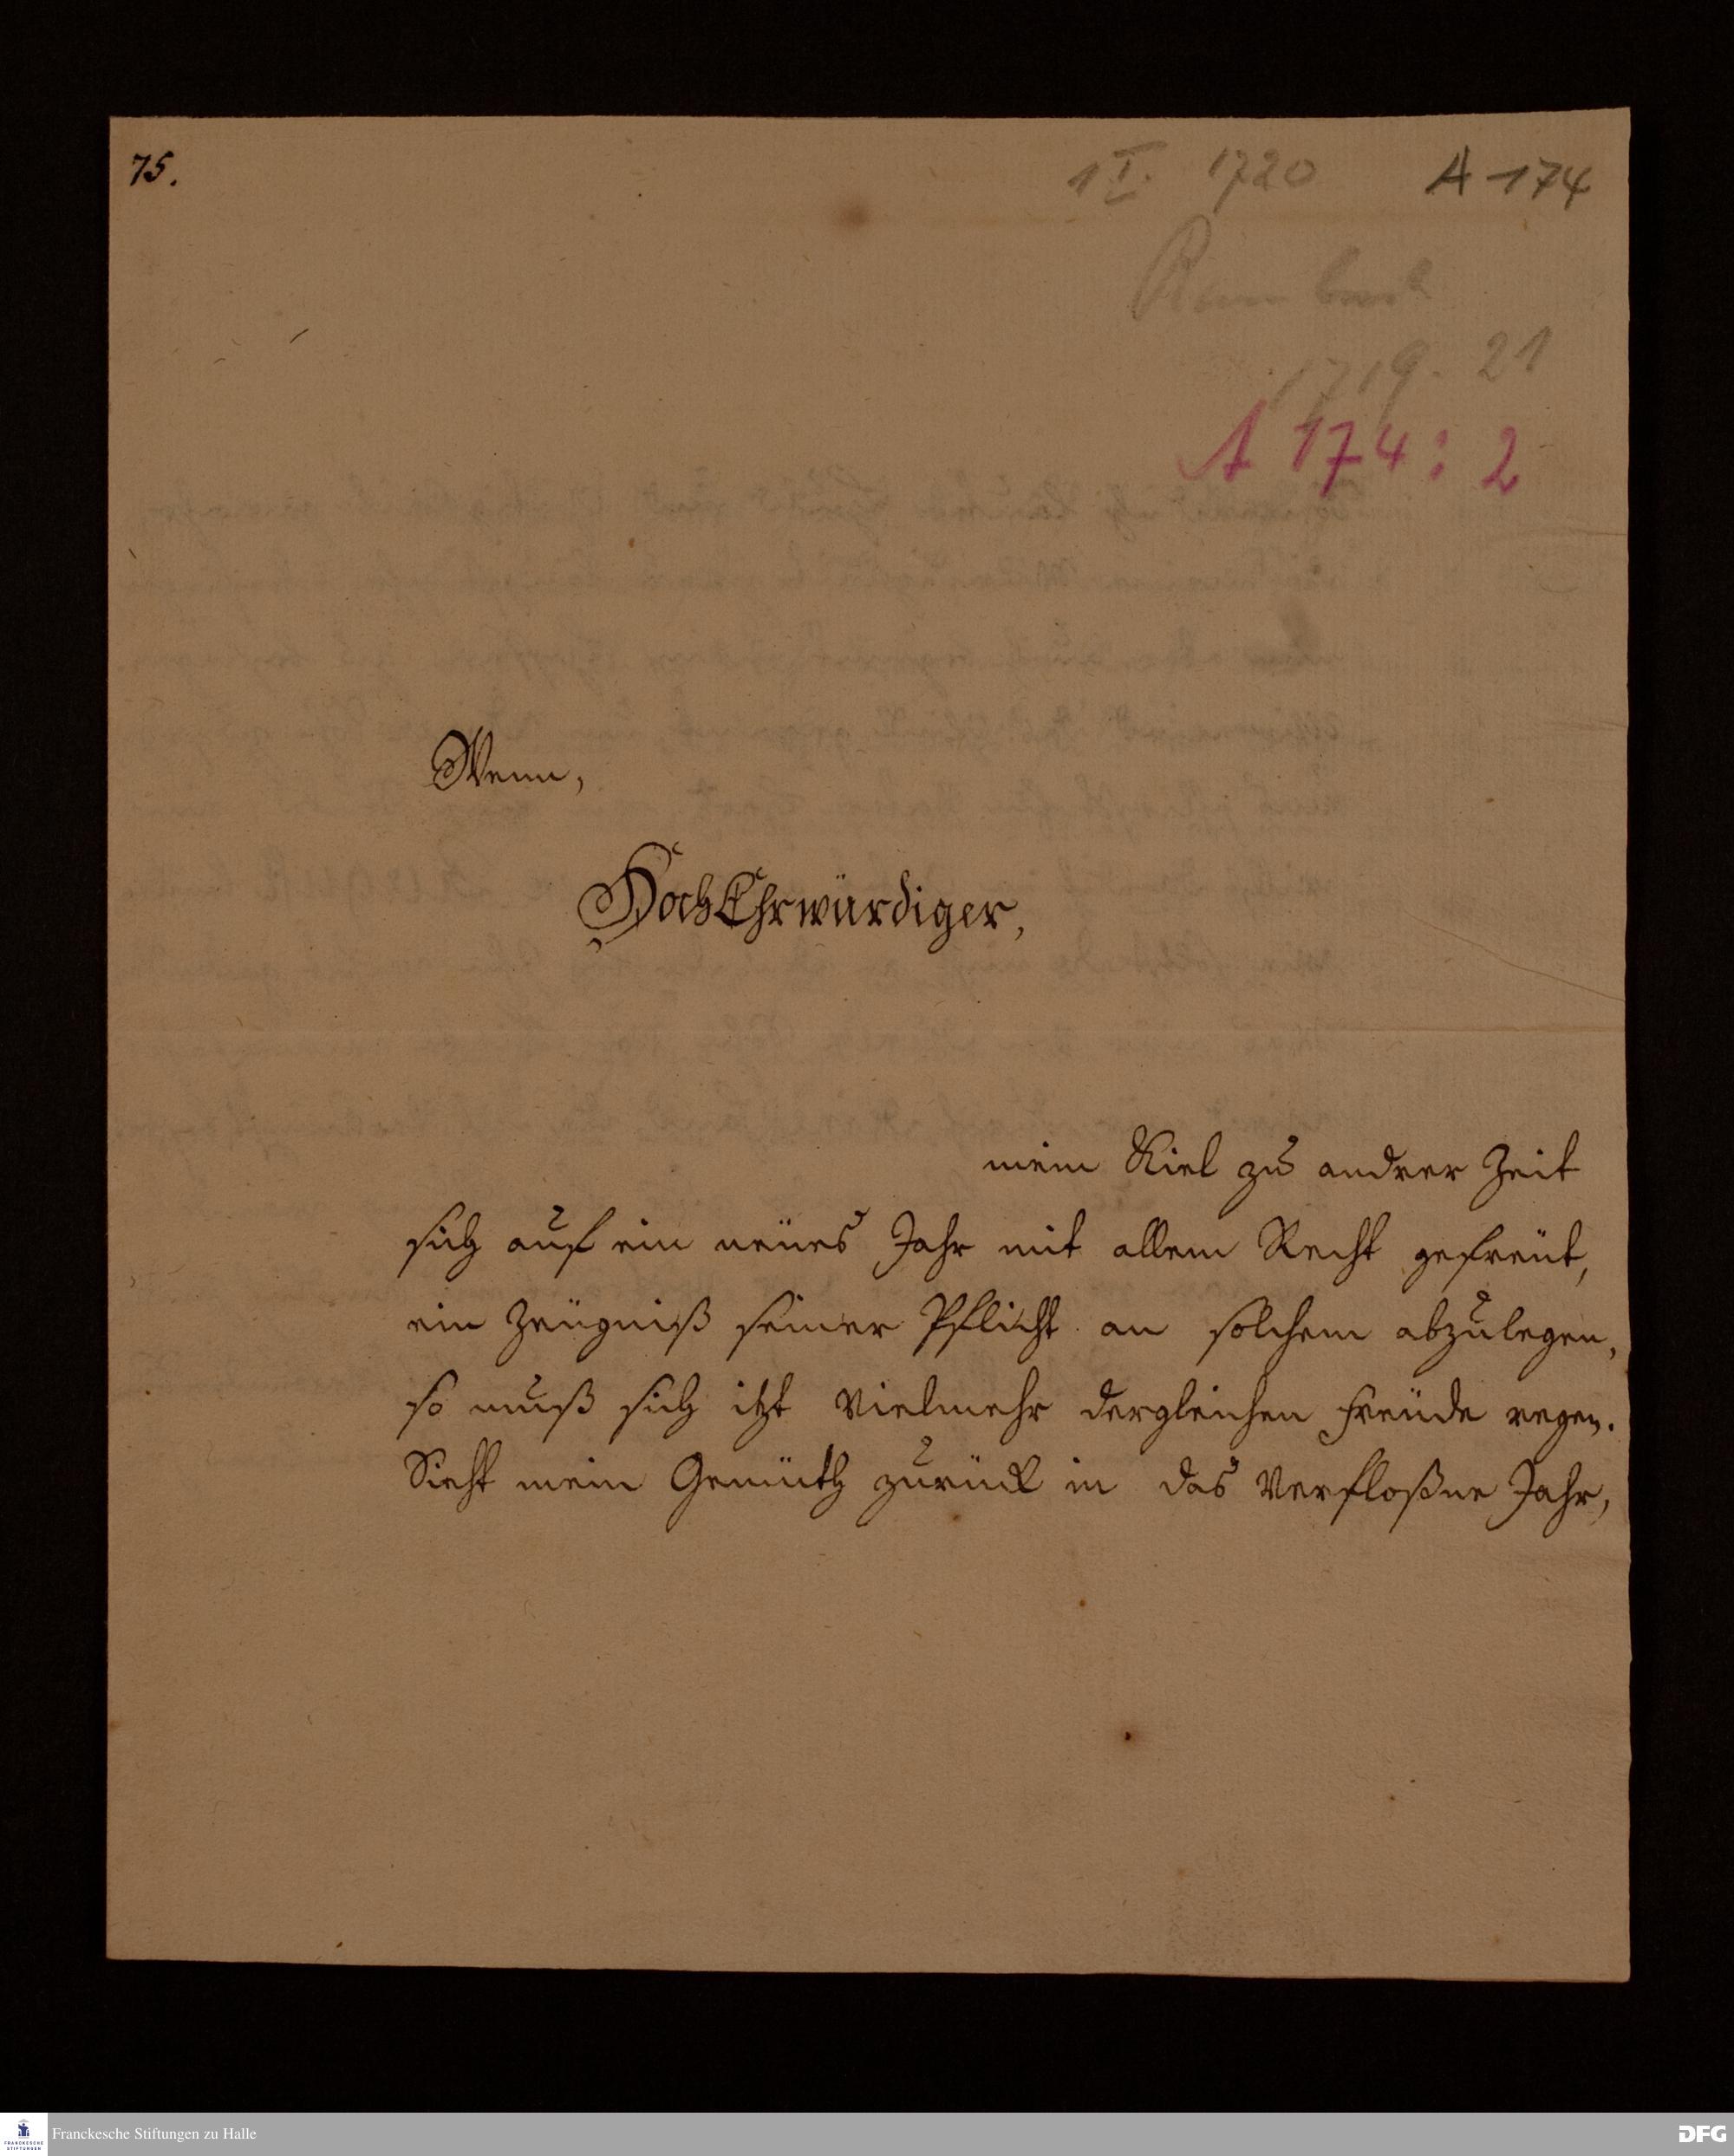 75.
1 I. 1720 A 174
Rambach
1719. 21
A 174: 2
Wenn,
HochEhrwürdiger,
mein Kiel zu andrer Zeit
sich auf ein neües Jahr mit allem Recht gefreüt,
ein Zeügniß seiner Pflicht an solchem abzulegen,
so muß sich itzt vielmehr dergleichen Freüde regen.
Sieht mein Gemüth zurück in das verfloßne Jahr,
Franckesche Stiftungen zu Halle
FRANCKESCHE
STIFTUNGEN
DFG